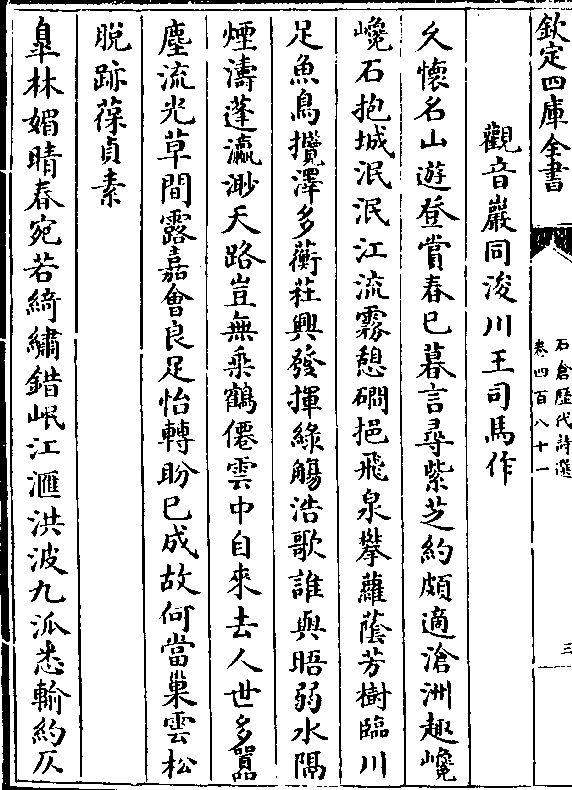 欽定四庫全書
石倉歷代詩選
卷四百八十一
三
觀音巖同浚川王司馬作
久懷名山遊登賞春已暮言尋紫芝約頗適滄洲趣巉
巉石抱城泯泯江流霧憩磵挹飛泉攀蘿蔭芳樹臨川
足魚鳥攬澤多蘅荘興發揮綠觴浩歌誰與晤弱水隔
煙濤蓬瀛渺天路豈無乗鶴僊雲中自來去人世多嚻
塵流光草間露嘉會良足怡轉盼已成故何當巢雲松
脫跡葆貞素
臯林媚晴春宛若綺繡錯岷江滙洪波九泒悉輸約仄